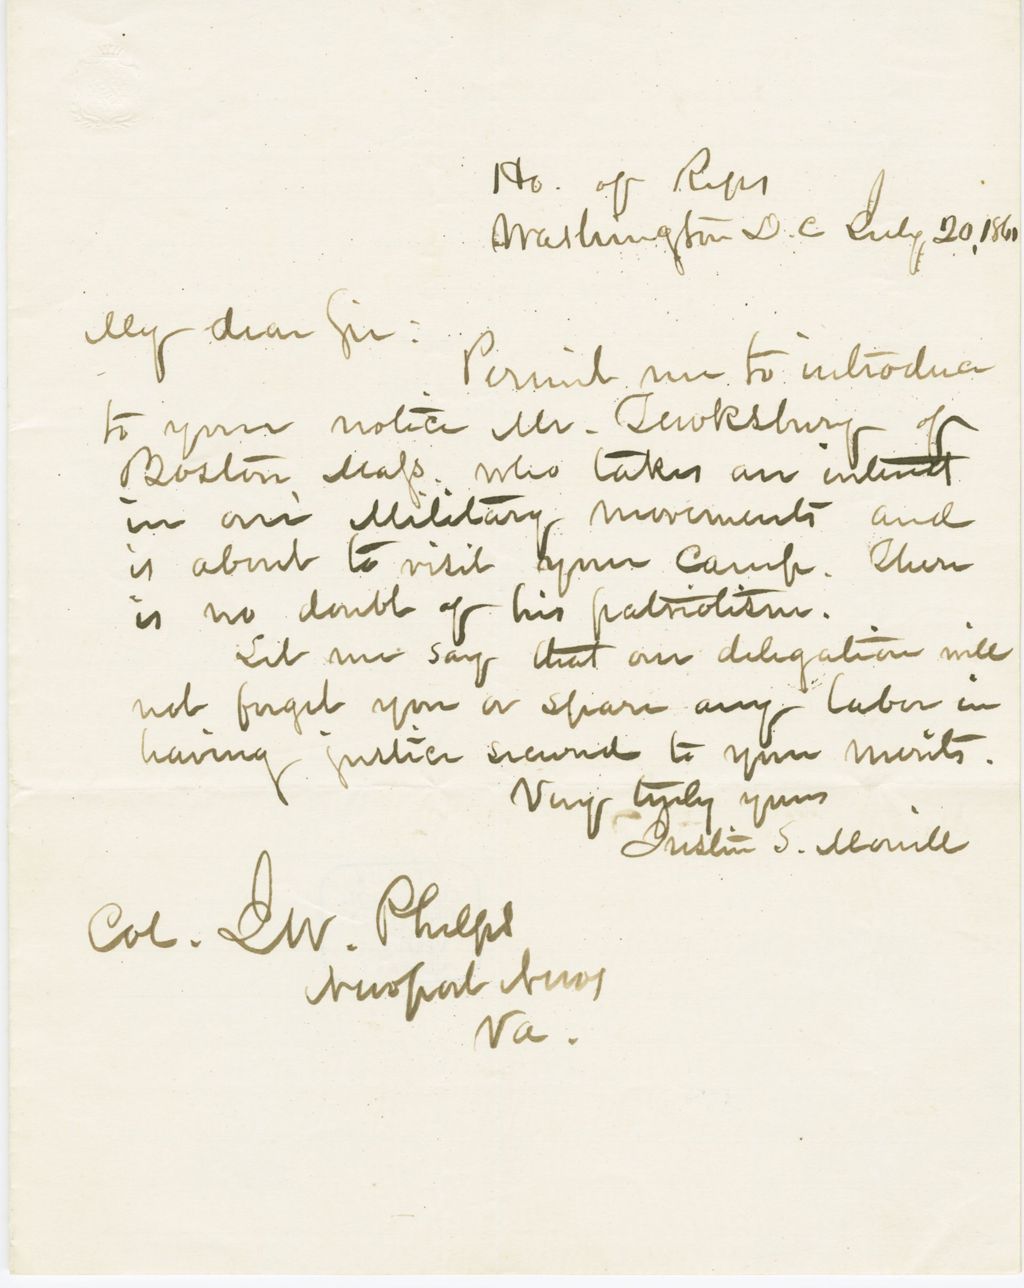 Ho. of Reps
Washington D. C July, 20, 1861
My dear Sir:
Permit me to introduce
to your notice Mr. Tewksbury of
Boston Mass. who takes an interest
in our Military movements and
is about to visit your camp. There
is no doubt of his patriotism.
Let me say that our delegation will
not forget you or spare any labor in
having justice secured to your merits.
Very truly yours
Justin S. Morrill
Col. J W. Phelps
Newport News
Va.